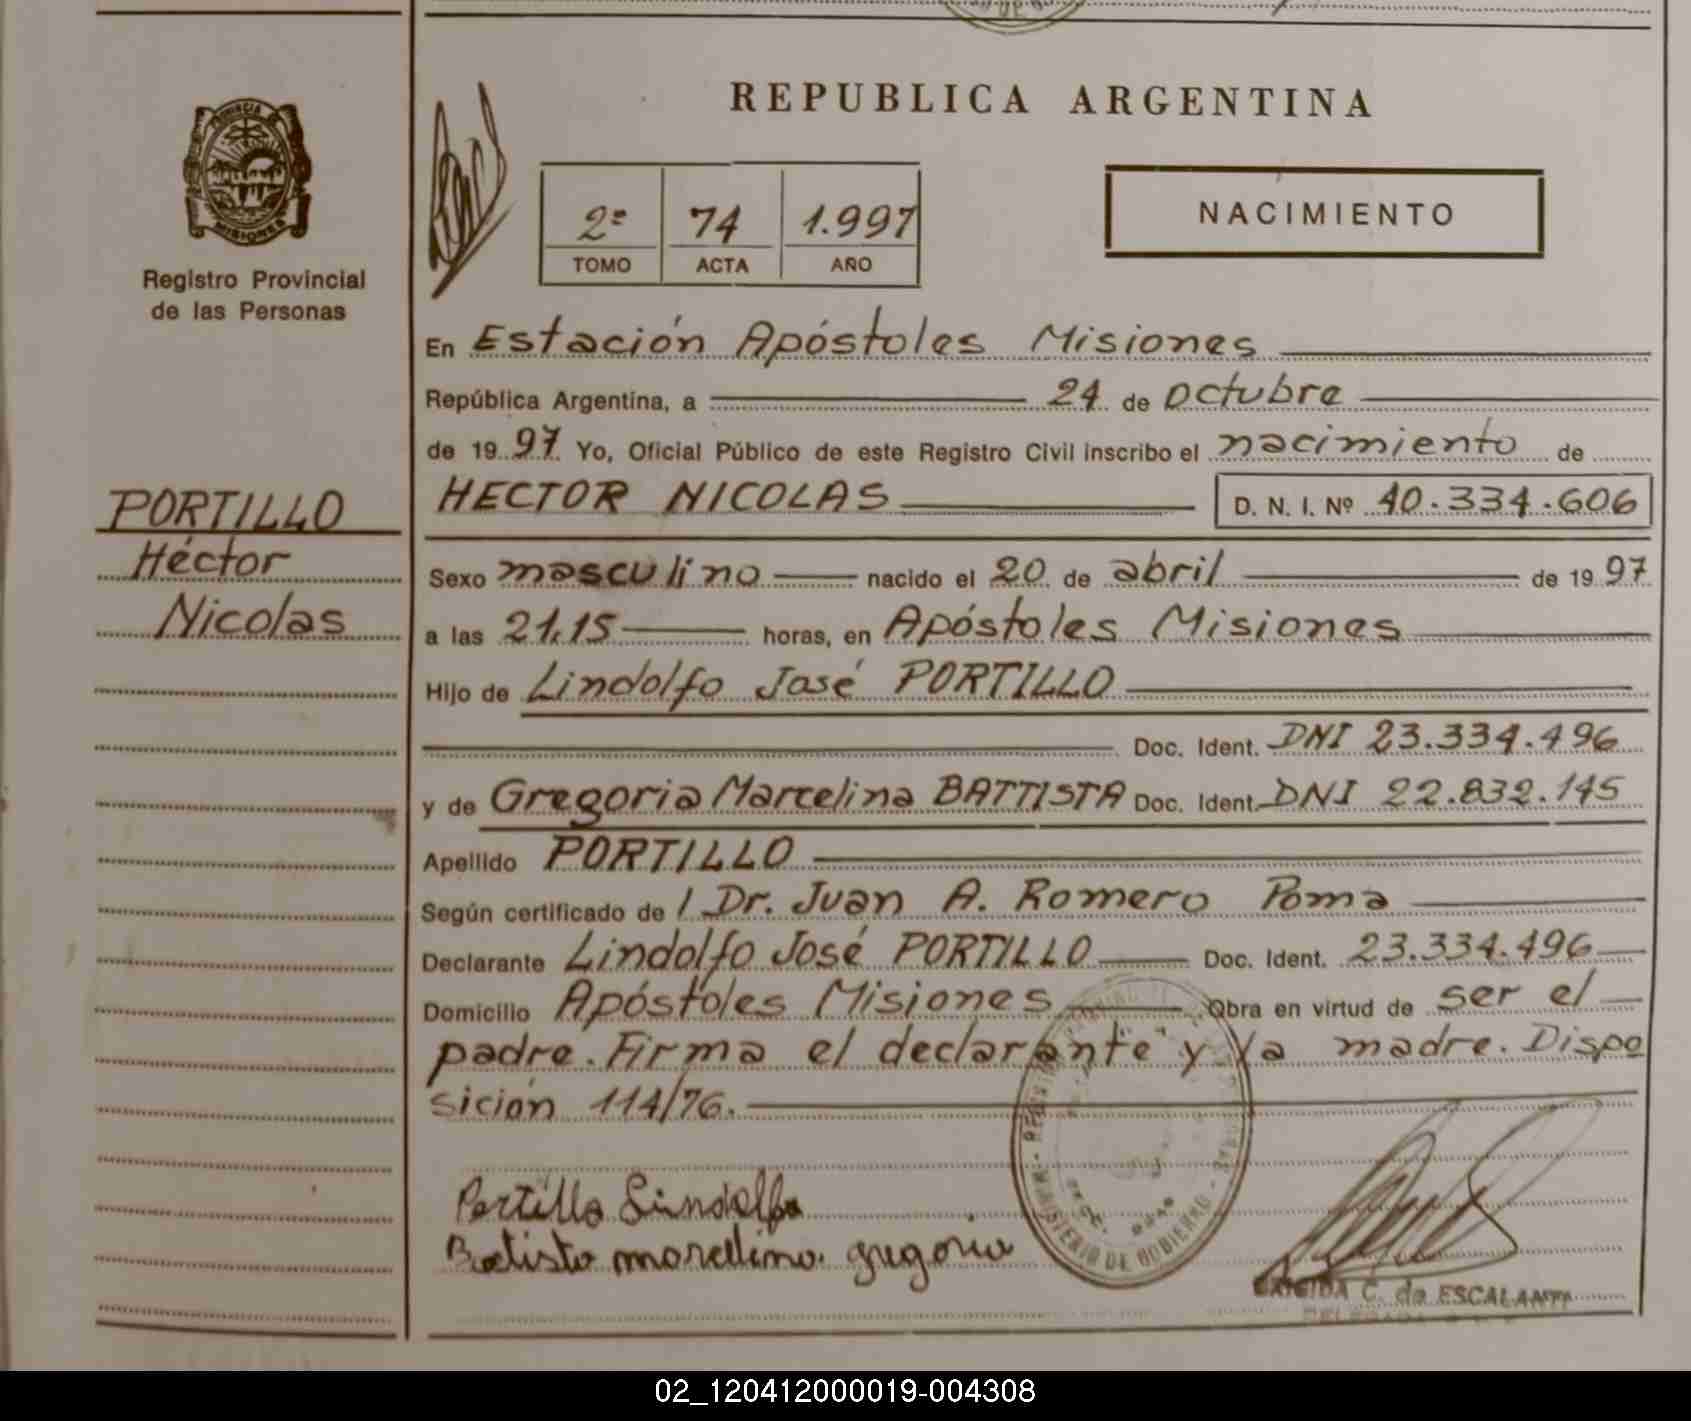 REPUBLICA ARGENTINA
PROVINCIA DE
MISIONES
Registro Provincial
de las Personas
2º 74 1.997
TOMO ACTA AÑO
NACIMIENTO
En Estación Apóstoles Misiones
República Argentina, a 24 de octubre
de 19 97 Yo, Oficial Público de este Registro Civil inscribo el nacimiento de
HECTOR NICOLAS D. N. I. Nº 40.334.606
PORTILLO
Héctor
Nicolas
Sexo masculino nacido el 20 de abril de 19 97
a las 21,15 horas, en Apóstoles Misiones
Hijo de Lindolfo José PORTILLO
Doc. Ident. DNI 23.334.496
y de Gregoria Marcelina BATTISTA Doc. Ident. DNI 22.832.145
Apellido PORTILLO
Según certificado de / Dr. Juan A. Romero Poma
Declarante Lindolfo José PORTILLO Doc. Ident. 23.334.496
Domicilio Apóstoles Misiones Obra en virtud de ser el
padre. Firma el declarante y la madre. Dispo
sición 114/76.
Portillo Lindolfo
Batista marcelina gregoria
MINISTERIO DE GOBIERNO
C. de ESCALANTE
02_120412000019-004308